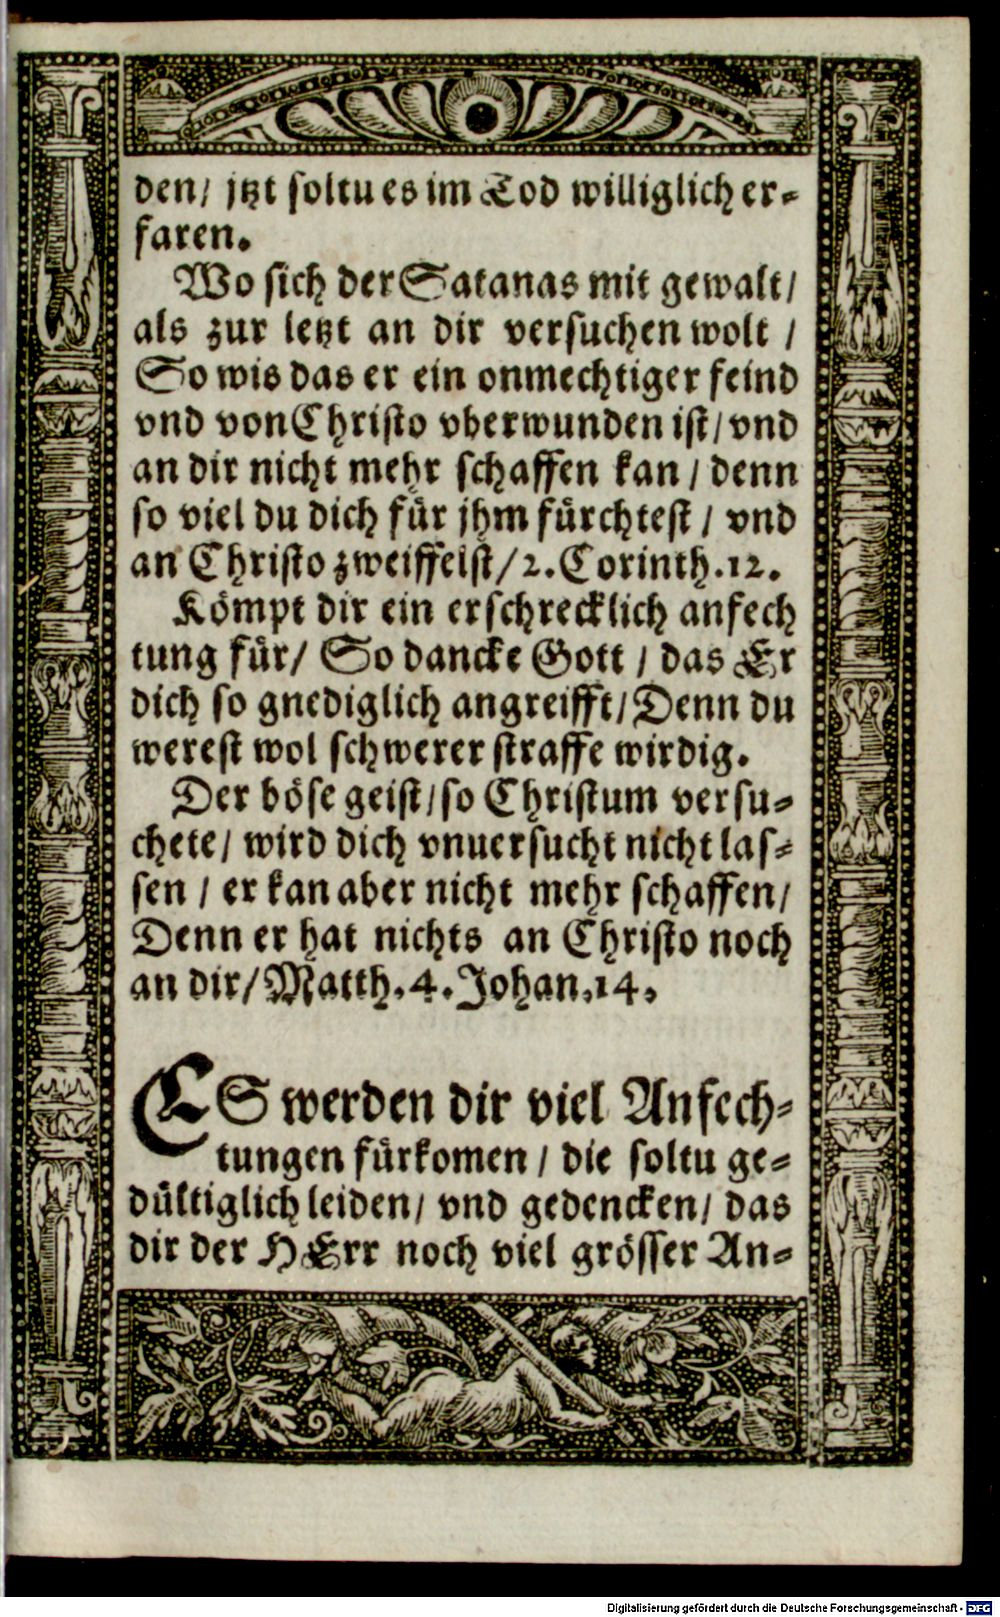 den/ jtzt soltu es im Tod williglich er-
faren.
Wo sich der Satanas mit gewalt/
als zur letzt an dir versuchen wolt /
So wis das er ein onmechtiger feind
vnd von Christo vberwunden ist/ vnd
an dir nicht mehr schaffen kan / denn
so viel du dich für jhm fürchtest / vnd
an Christo zweiffelst/ 2. Corinth. 12.
Kömpt dir ein erschrecklich anfech
tung für/ So dancke Gott / das Er
dich so gnediglich angreifft/ Denn du
werest wol schwerer straffe wirdig.
Der böse geist/ so Christum versu-
chete/ wird dich vnuersucht nicht las-
sen / er kan aber nicht mehr schaffen/
Denn er hat nichts an Christo noch
an dir/ Matth. 4. Johan. 14.
ES werden dir viel Anfech-
tungen fürkomen / die soltu ge-
dültiglich leiden/ vnd gedencken/ das
dir der HErr noch viel grösser An-
Digitalisierung gefördert durch die Deutsche Forschungsgemeinschaft - DFG